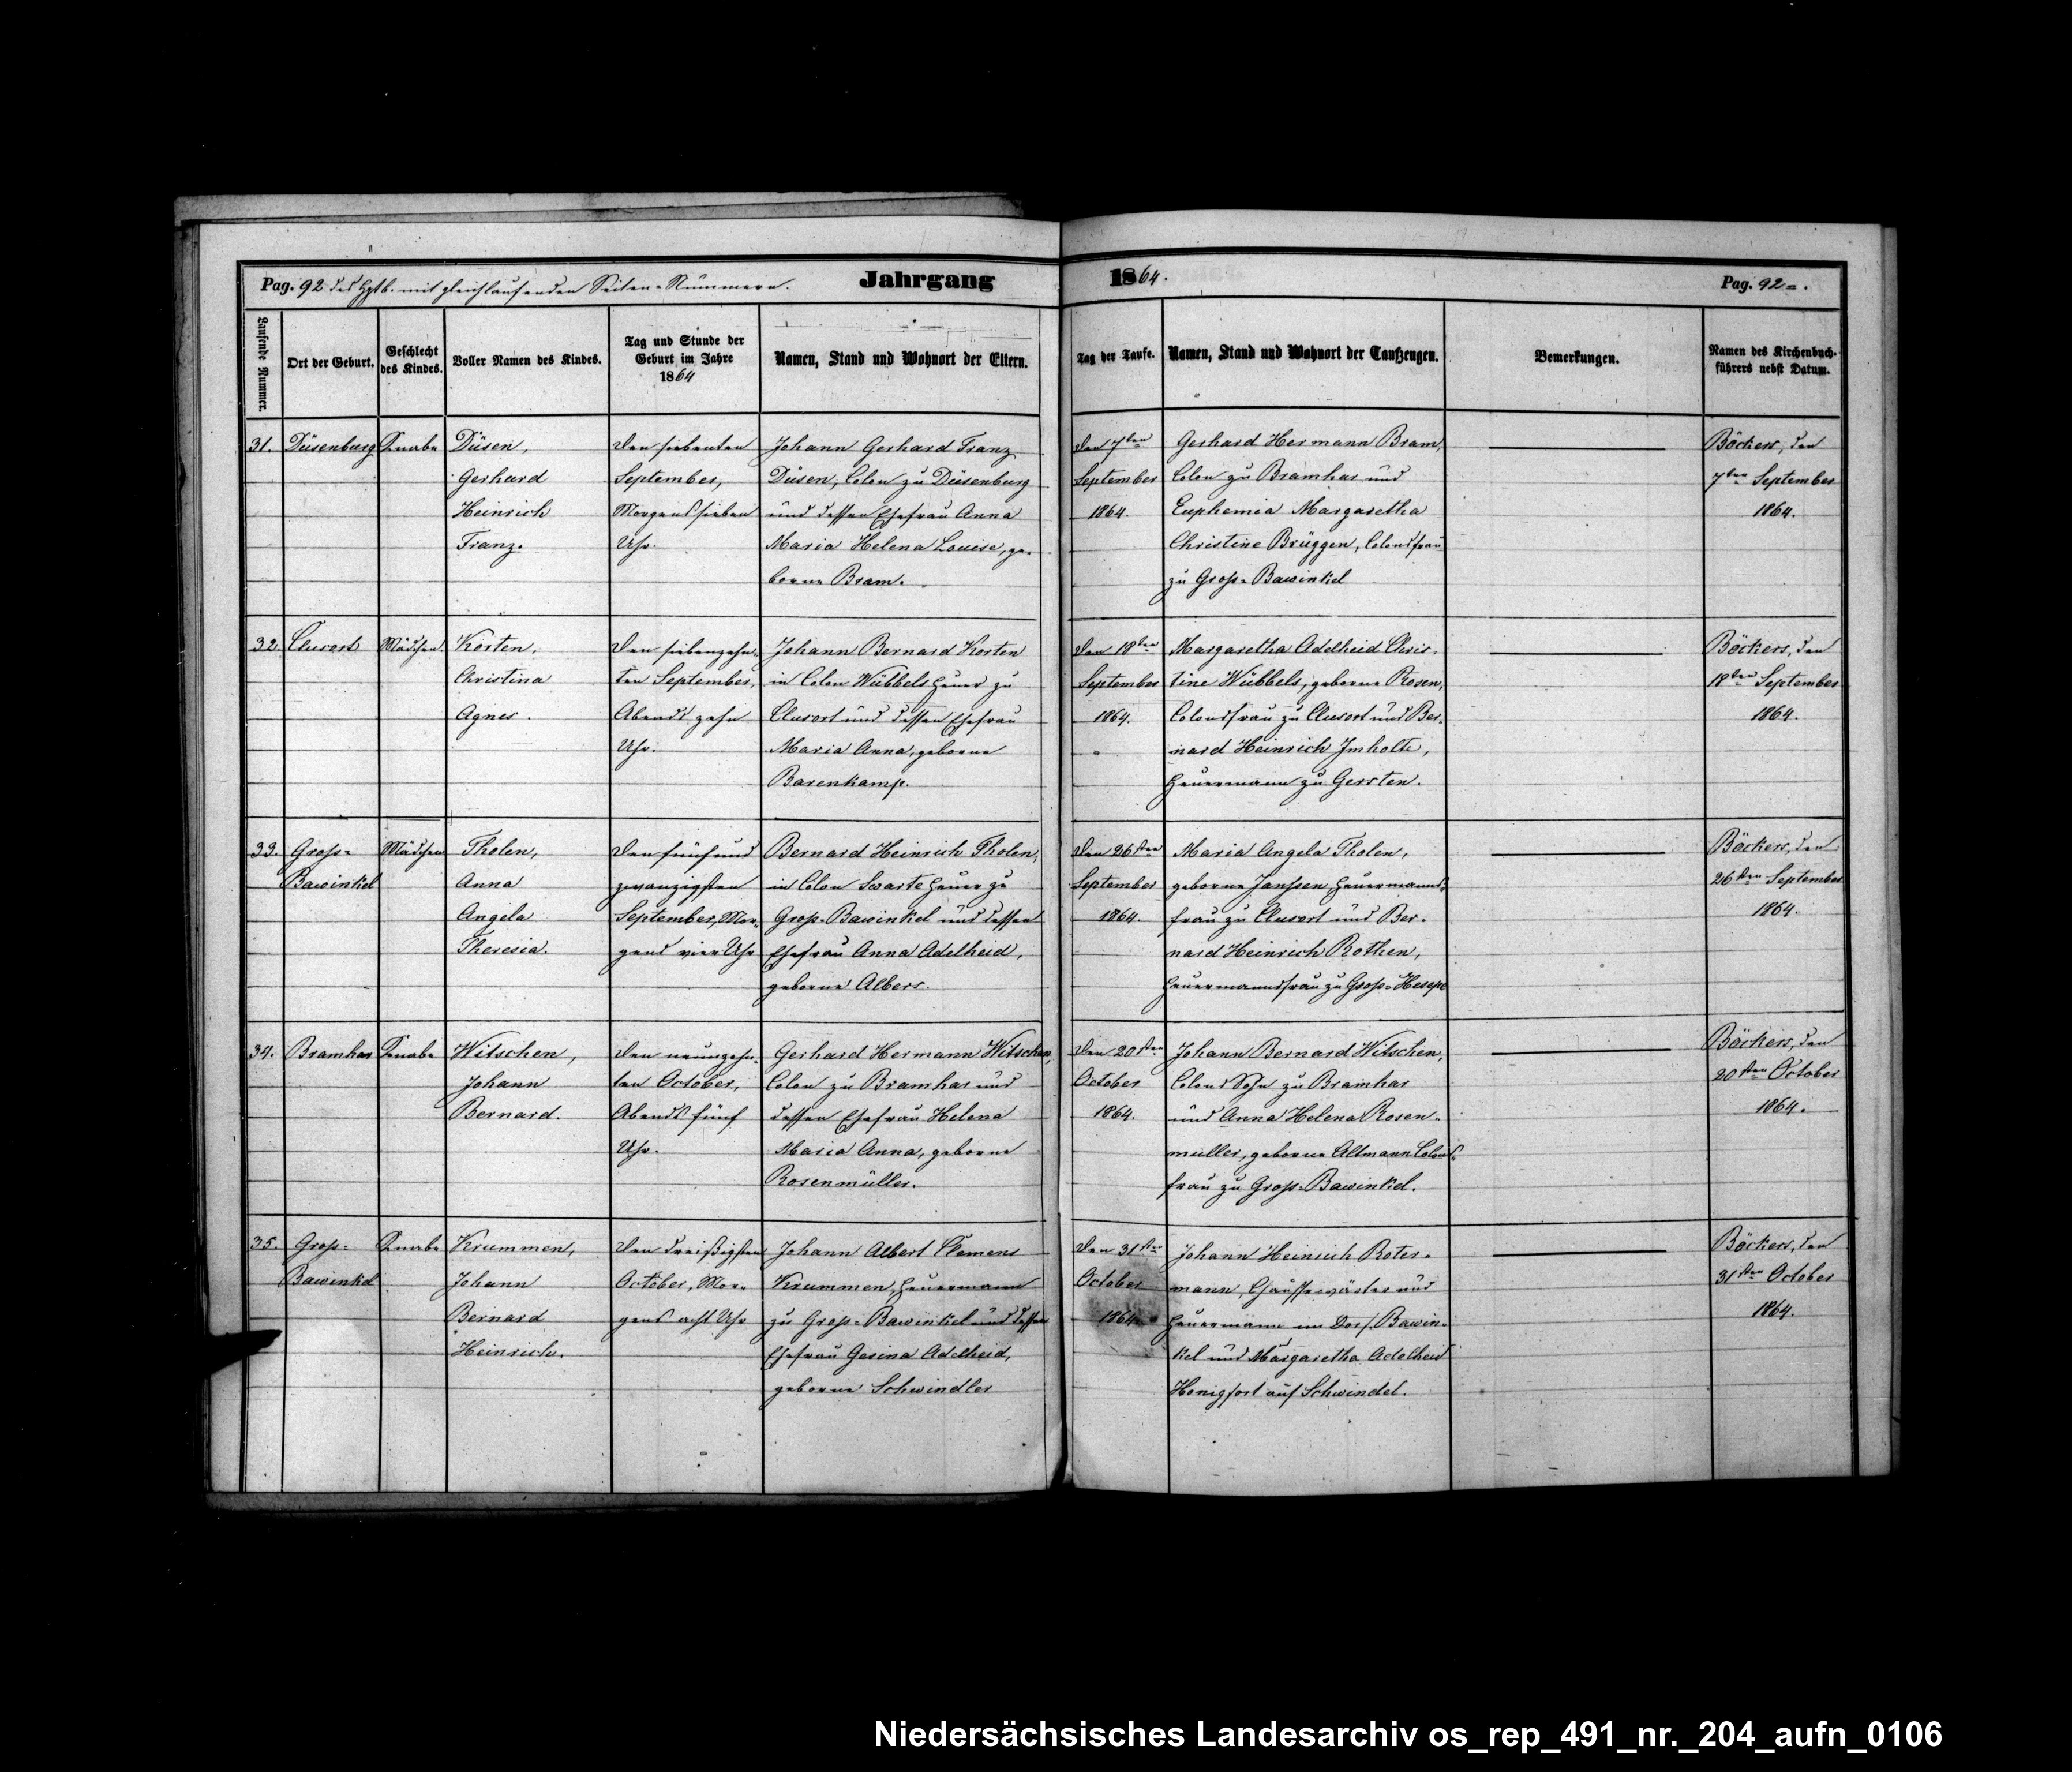 Pag. 92 des Hptb. mit gleichlaufenden Seiten-Nummern. Jahrgang 1864. Pag. 92=.
Laufende Nummer.
Ort der Geburt.
Geschlecht
des Kindes.
Voller Namen des Kindes.
Tag und Stunde der
Geburt im Jahre
1864
Namen, Stand und Wohnort der Eltern.
Tag der Taufe.
Namen, Stand und Wohnort der Taufzeugen.
Bemerkungen.
Namen des Kirchenbuch-
führers nebst Datum.
31.
Düsenburg
Knabe
Düsen,
Gerhard
Heinrich
Franz.
Den siebenten
September,
Morgens sieben
Uhr.
Johann Gerhard Franz
Düsen, Colon zu Düsenburg
und dessen Ehefrau Anna
Maria Helena Louise, ge-
borne Bram.
Den 7ten
September
1864.
Gerhard Hermann Bram,
Colon zu Bramhar und
Euphemia Margaretha
Christine Brüggen, Colonsfrau
zu Groß-Bawinkel
Böckers, den
7ten September
1864.
32.
Clusort
Mädchen
Korten,
Christina
Agnes.
Den siebenzehn-
ten September,
Abends zehn
Uhr.
Johann Bernard Korten
in Colon Wübbels Heuer zu
Clusort und dessen Ehefrau
Maria Anna, geborne
Barenkamp.
Den 18ten
September
1864.
Margaretha Adelheid Chris-
tine Wübbels, geborne Rosen,
Colonsfrau zu Clusort und Ber-
nard Heinrich Imholte,
Heuermann zu Gersten.
Böckers, den
18ten September
1864.
33.
Groß-
Bawinkel
Mädchen
Tholen,
Anna
Angela
Theresia.
Den fünfund
zwanzigsten
September, Mor-
gens vier Uhr
Bernard Heinrich Tholen,
in Colon Swarte Heuer zu
Groß-Bawinkel und dessen
Ehefrau Anna Adelheid,
geborne Albers.
Den 26sten
September
1864.
Maria Angela Tholen,
geborne Janssen, Heuermanns-
frau zu Clusort und Ber-
nard Heinrich Rothen,
Heuermannsfrau zu Groß-Hesepe
Böckers, den
26sten September
1864.
34.
Bramhar
Knabe
Witschen,
Johann
Bernard.
Den neunzehn-
ten October,
Abends fünf
Uhr.
Gerhard Hermann Witschen,
Colon zu Bramhar und
dessen Ehefrau Helena
Maria Anna, geborne
Rosenmüller.
Den 20sten
October
1864.
Johann Bernard Witschen,
Colons Sohn zu Bramhar
und Anna Helena Rosen-
müller, geborne Altmann Colons-
frau zu Groß-Bawinkel.
Böckers, den
20sten October
1864.
35.
Groß-
Bawinkel
Knabe
Krummen,
Johann
Bernard
Heinrich.
Den dreißigsten
October, Mor-
gens acht Uhr
Johann Albert Clemens
Krummen, Heuermann
zu Groß-Bawinkel und dessen
Ehefrau Gesina Adelheid,
geborne Schwindler
Den 31sten
October
1864.
Johann Heinrich Roter-
mann, Chausseewärter und
Heuermann im Dorf Bawin-
kel und Margaretha Adelheid
Honigfort auf Schwindel.
Böckers, den
31sten October
1864.
Niedersächsisches Landesarchiv os_rep_491_nr._204_aufn_0106